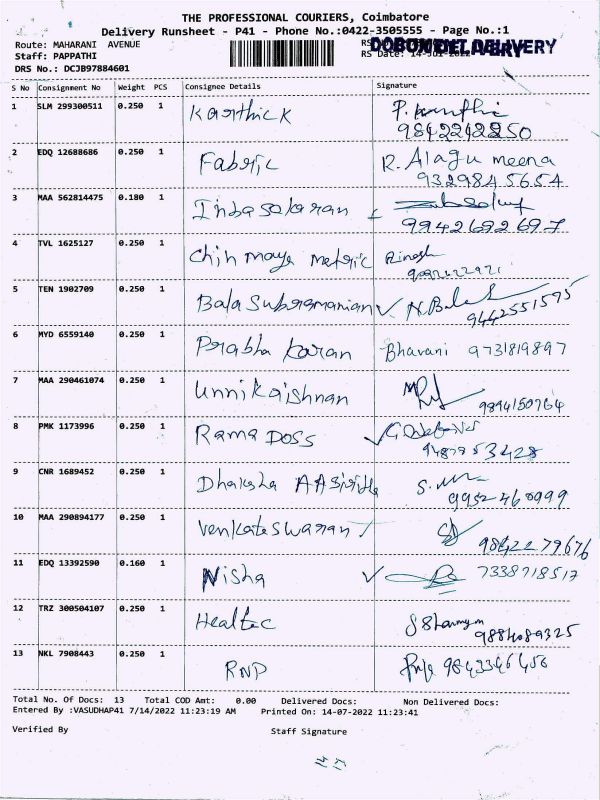 THE PROFESSIONAL COURIERS, Coimbatore
Delivery Runsheet - P41 - Phone No.:0422-3505555 - Page No.:1
Route: MAHARANI AVENUE
Staff: PAPPATHI
RS Date: 14-Jul-2022
DRS No.: DCJB97884601
S No Consignment No Weight PCS Consignee Details Signature
1 SLM 299300511 0.250 1 Karthick
9842242250
2 EDQ 12688686 0.250 1 Fabric R. Alagu meena
9329845654
3 MAA 562814475 0.180 1 Inbasakaran
9942692697
4 TVL 1625127 0.250 1 Chinmaya Metric Dinesh
5 TEN 1902709 0.250 1 Bala Subramanian N. Bala
9442551595
6 MYD 6559140 0.250 1 Prabha karan Bhavani 9731819897
7 MAA 290461074 0.250 1 Unnikrishnan
9894150764
8 PMK 1173996 0.250 1 Rama Doss
9487953428
9 CNR 1689452 0.250 1 Dhaksha
9952460999
10 MAA 290894177 0.250 1 Venkateswaran
9842279676
11 EDQ 13392590 0.160 1 Nisha 7338718517
12 TRZ 300504107 0.250 1 Healtec
9884089325
13 NKL 7908443 0.250 1 RNP 9843346456
Total No. Of Docs: 13 Total COD Amt: 0.00 Delivered Docs: Non Delivered Docs:
Entered By :VASUDHAP41 7/14/2022 11:23:19 AM Printed On: 14-07-2022 11:23:41
Verified By Staff Signature